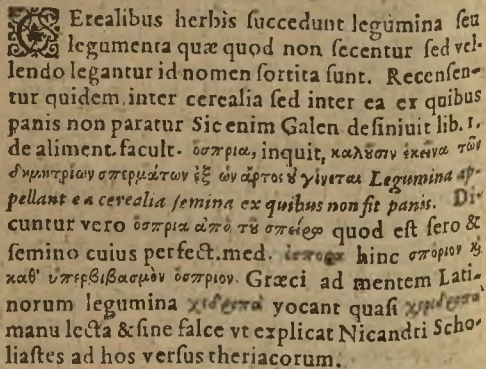 CErealibus herbis ſuccedunt legumina ſeu
legumenta quæ quod non ſecentur ſed vel-
lendo legantur id nomen ſortita ſunt. Recenſen-
tur quidem inter cerealia ſed inter ea ex quibus
panis non paratur Sic enim Galen definiuit lib. 1.
de aliment. facult. ὄσπρια, inquit, καλοῦσιν ἐκεῖνα τῶν
δημητρίων σπερμάτων ἐξ ὧν ἄρτος ȣ γίνεται Legumina ap-
pellant ea cerealia ſemina ex quibus non fit panis. Di-
cuntur vero ὄσπρια ἀπὸ τȣ σπείρω quod eſt ſero &
ſemino cuius perfect. med. ἔσπορα hinc σπόριον ϗ
καθ' ὑπερβιβασμὸν ὄσπριον. Græci ad mentem Lati-
norum legumina χέδροπα vocant quaſi χερίδροπα
manu lecta & ſine falce vt explicat Nicandri Scho-
liaſtes ad hos verſus theriacorum.